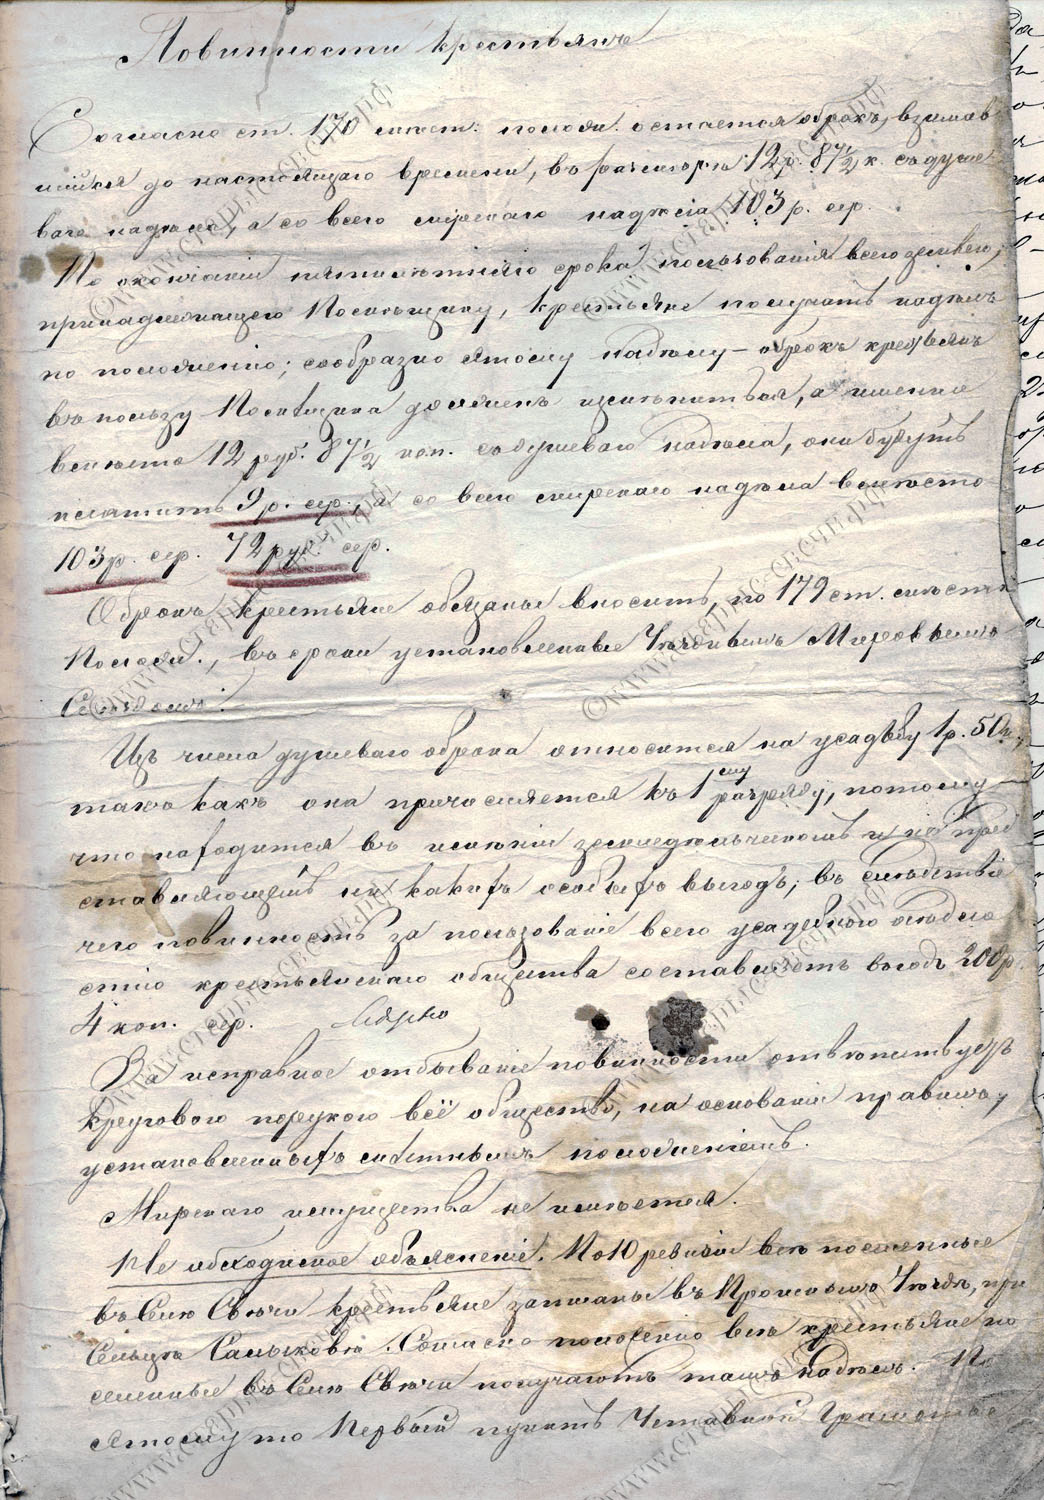 Повинности крестьянъ
Согласно ст. 170 мѣст: полож. остается оброкъ, взимав
шійся до настоящаго времени, въ размѣрѣ 12 р. 87½ к. съ душе
ваго надѣла, а со всего мірскаго надѣла 103 р. сер.
По окончаніи пятилѣтняго срока пользованія всею землею,
принадлежащею Помѣщику, крестьяне получатъ надѣлъ
по положенію; сообразно этому надѣлу – оброкъ крестьянъ
въ пользу Помѣщика долженъ измѣниться, а именно
вмѣсто 12 руб. 87½ коп. съ душеваго надѣла, они будутъ
платить 9 р. сер., а со всего мірскаго надѣла вмѣсто
103 р. сер. 72 руб. сер.
Оброкъ крестьяне обязаны вносить, по 179 ст. мѣстн
Полож., въ сроки установленные Уѣзднымъ Мировымъ
Съѣздомъ.
Изъ числа душеваго оброка относится на усадьбу 1 р. 50 к.,
такъ какъ она причисляется къ 1му разряду, потому
что находится въ имѣніи земледѣльческомъ и не пред
ставляющемъ ни какихъ особыхъ выгодъ; въ слѣдствіе
чего повинность за пользованіе всею усадебною осѣдло
стію крестьянскаго общества составляетъ въ годъ 200 р.
4 коп. сер.
За исправное отбываніе повинности отвѣтствуетъ
круговою порукою всё общество, на основаніи правилъ,
установленныхъ мѣстнымъ положеніемъ.
Мірскаго имущества не имѣется.
Не обходимое объясненіе. По 10 ревизіи всѣ поселенные
въ Селѣ Свѣчи крестьяне записаны въ Уѣздѣ, при
Сельцѣ. Согласно положенію всѣ крестьяне по
селенные въ Селѣ Свѣчи получаютъ тамъ надѣлъ. По
этому то Первый пунктъ Уставной Грамоты